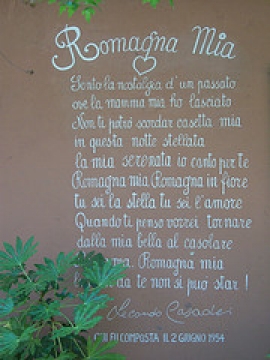 Romagna Mia
Sento la nostalgia d'un passato
ove la mamma mia ho lasciato
Non ti potrò scordar casetta mia
in questa notte stellata
la mia serenata io canto per te
Romagna mia Romagna in fiore
tu sei la stella tu sei l'amore
Quando ti penso vorrei tornare
dalla mia bella al casolare
Romagna mia
da te non si può star!
Secondo Casadei
FU COMPOSTA IL 2 GIUGNO 1954